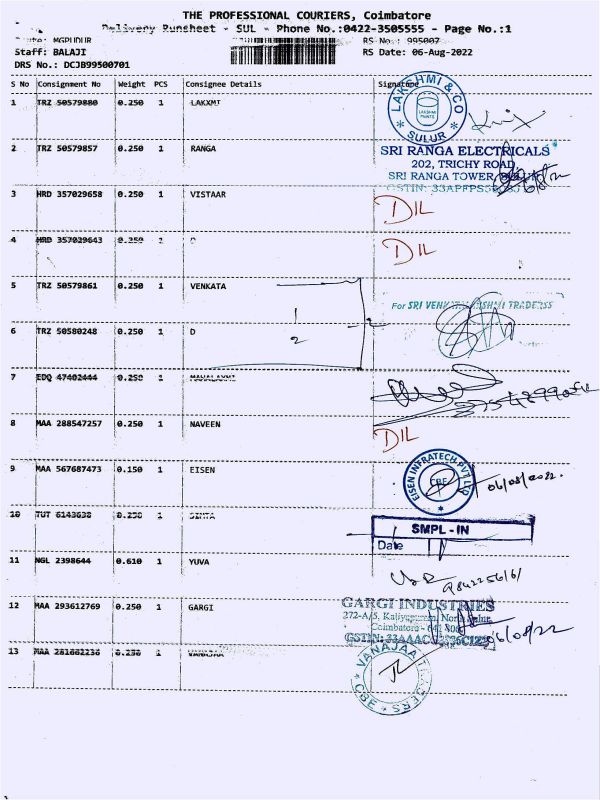 THE PROFESSIONAL COURIERS, Coimbatore
Delivery Runsheet - SUL - Phone No.:0422-3505555 - Page No.:1
Route: MGPUDUR
RS No.: 995007
Staff: BALAJI
RS Date: 06-Aug-2022
DRS No.: DCJB99500701
S No Consignment No Weight PCS Consignee Details Signature
1 TRZ 50579880 0.250 1 LAKXMI
LAKSHMI & CO
SULUR
2 TRZ 50579857 0.250 1 RANGA
SRI RANGA ELECTRICALS
202, TRICHY ROAD,
SRI RANGA TOWER,
GSTIN: 33APFPS
3 HRD 357029658 0.250 1 VISTAAR
DIL
4 HRD 357029643 0.250 1 D
DIL
5 TRZ 50579861 0.250 1 VENKATA
For SRI VENKATALAKSHMI TRADERSS
6 TRZ 50580248 0.250 1 D
1
2
7 EDQ 47402444 0.250 1 MAHALAXMI
8 MAA 288547257 0.250 1 NAVEEN
DIL
9 MAA 567687473 0.150 1 EISEN
EISEN INFRATECH PVT LTD
CBE
06/08/2022.
10 TUT 6143638 0.250 1
SMPL - IN
Date
11 NGL 2398644 0.610 1 YUVA
12 MAA 293612769 0.250 1 GARGI
GARGI INDUSTRIES
272-A/5, Kaliyapuram, North Sulur,
Coimbatore - 641
GSTIN: 33AAAC
06/08/22
13 MAA 281602236 0.250 1 VANAJAA
VANAJAA TRADERS
CBE